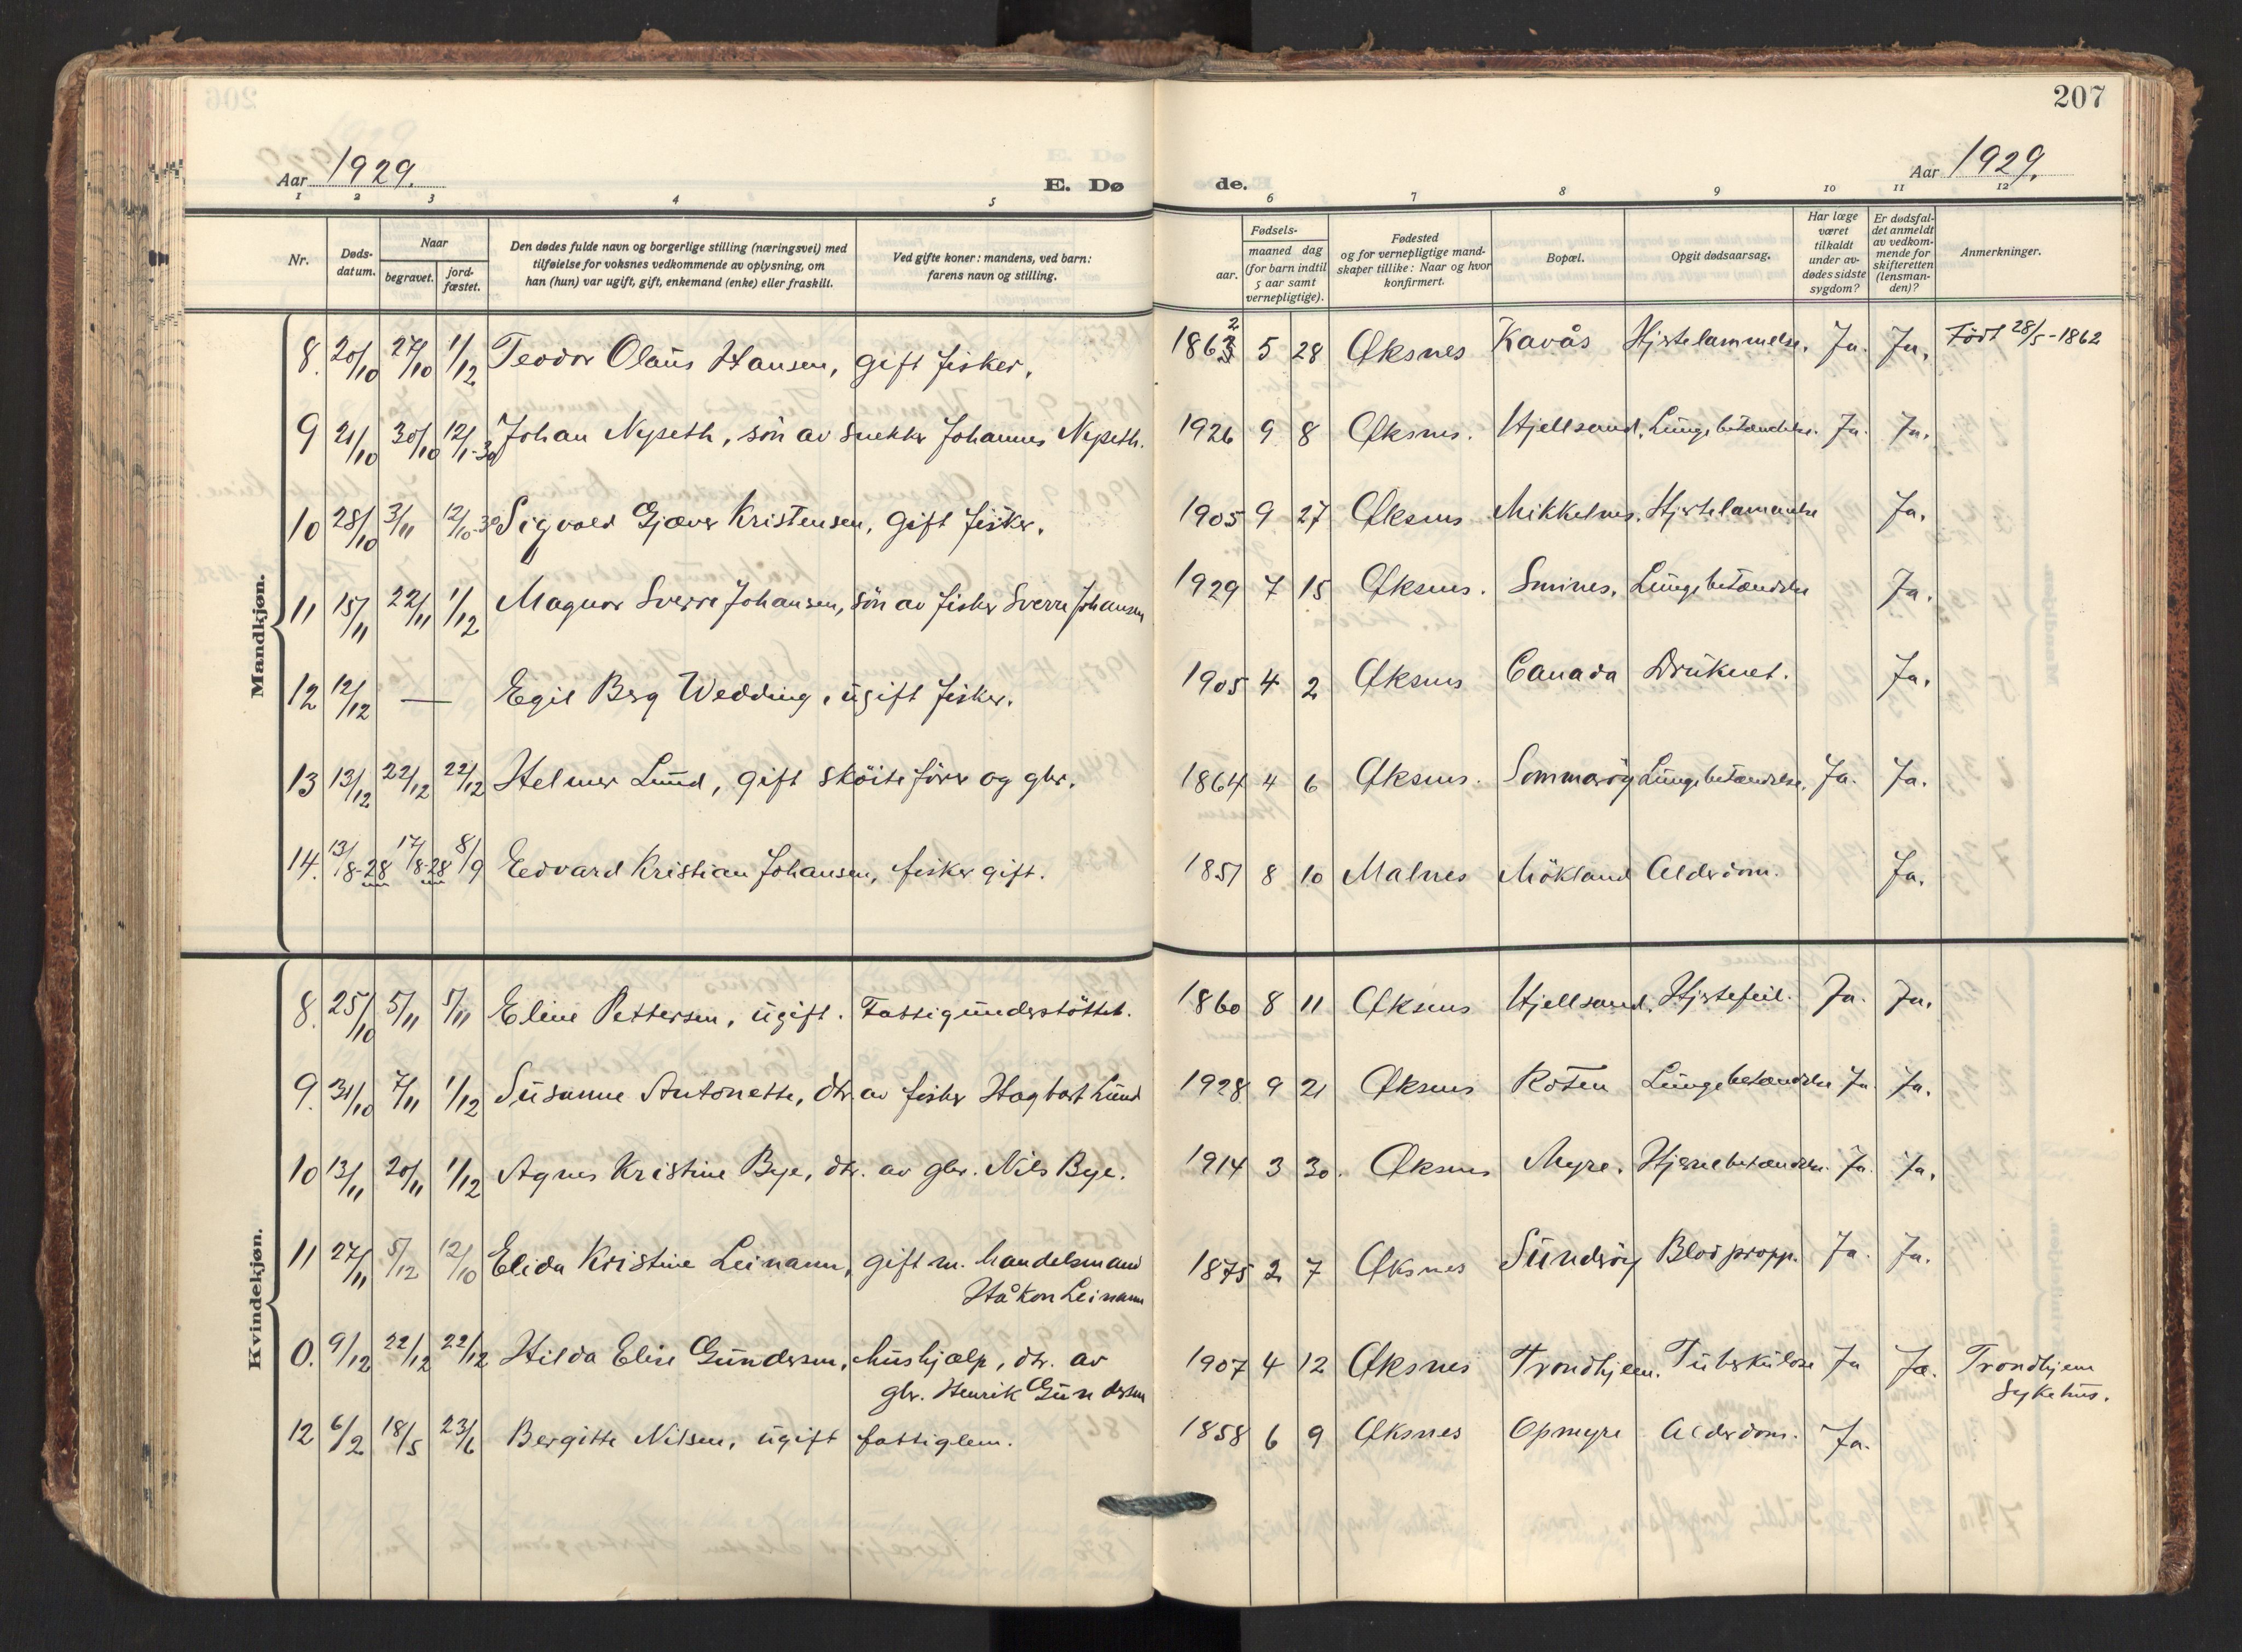 207
Aar 1929.
E. Dø
de.
Aar 1929.
1 2 3 4 5 6 7 8 9 10 11 12
Nr.
Døds-
datum.
Naar
begravet.
jord-
fæstet.
Den dødes fulde navn og borgerlige stilling (næringsvei) med
tilføielse for voksnes vedkommende av oplysning, om
han (hun) var ugift, gift, enkemand (enke) eller fraskilt.
Ved gifte koner: mandens, ved barn:
farens navn og stilling.
Fødsels-
aar.
maaned dag
(for barn indtil
5 aar samt
vernepligtige).
Fødested
og for vernepligtige mand-
skaper tillike: Naar og hvor
konfirmert.
Bopæl.
Opgit dødsaarsag.
Har læge
været
tilkaldt
under av-
dødes sidste
sygdom?
Er dødsfal-
det anmeldt
av vedkom-
mende for
skifteretten
(lensman-
den)?
Anmerkninger.
Mandkjøn.
8. 20/10 27/10 1/12 Teodor Olaus Hansen, gift fisker. 1863 2 5 28 Øksnes Kavås Hjertelammelse. Ja. Ja. Født 28/5-1862
9 21/10 30/10 12/1-30 Johan Nypeth, sön av snekker Johannes Nypeth. 1926 9 8 Øksnes. Hjellsand. Lungebetændelse. Ja. Ja.
10 28/10 3/11 12/10-30 Sigvald Gjæver Kristensen, gift fisker. 1905 9 27 Øksnes Mikkelnes. Hjertelammelse Ja.
11 15/11 22/11 1/12 Magnor Sverre Johansen, sön av fisker Sverre Johansen 1929 7 15 Øksnes. Smines. Lungebetændelse Ja.
12 12/12 — Egil Berg Wedding, ugift fisker. 1905 4 2 Øksnes Canada Druknet. Ja.
13 13/12 22/12 22/12 Helmer Lund, gift sköiteförer og gbr. 1864 4 6 Øksnes. Sommaröy Lungebetændelse. Ja. Ja.
14. 13/8-28 17/8-28 8/9 Edvard Kristian Johansen, fisker gift. 1851 8 10 Malnes Mökland Alderdom. Ja.
Kvindekjøn.
8. 25/10 5/11 5/11 Eline Pettersen, ugift. Fattigunderstöttet. 1860 8 11 Øksnes Hjellsand. Hjertefeil. Ja. Ja.
9. 31/10 7/11 1/12 Susanne Antonette, dtr. av fisker Hagbart Lund 1928 9 21 Øksnes Roten Lungebetændelse Ja. Ja.
10 13/11 20/11 1/12 Agnes Kristine Bye, dtr. av gbr. Nils Bye. 1914 3 30. Øksnes Myre. Hjernebetændelse. Ja. Ja.
11 27/11 5/12 12/10 Elida Kristine Leinann, gift m. handelsmand
Håkon Leinann 1875 2 7 Øksnes Sunderöy Blodpropp. Ja. Ja.
0. 9/12 22/12 22/12 Hilda Elise Gundersen, hushjælp, dtr. av
gbr. Henrik Gundersen 1907 4 12 Øksnes Trondhjem. Tuberkulose Ja Ja. Trondhjem
Sykehus.
12 6/2 18/5 23/6 Bergitte Nilsen, ugift fattiglem. 1858 6 9 Øksnes Opmyre Alderdom. Ja.